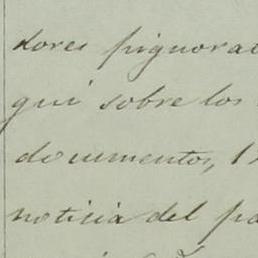 dores pignorat
qui sobre los
documentos,
noticia del pa